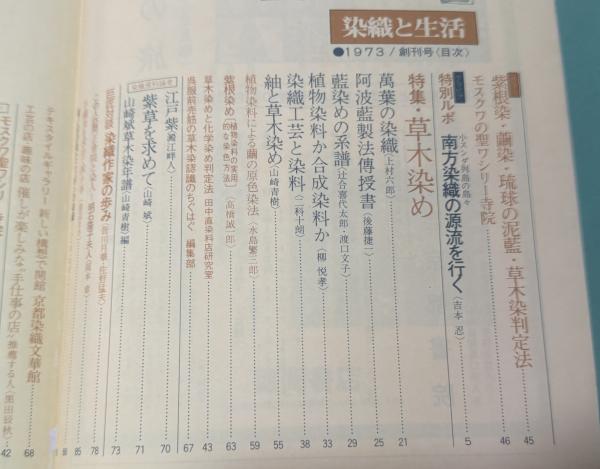 染織と生活
●1973/創刊号〈目次〉
紫根染・繭染・琉球の泥藍・草木染判定法 45
モスクワの聖ワシリー寺院 46
特別ルポ 小スンダ列島の島々 南方染織の源流を行く〈吉本 忍〉 5
特集・草木染め
萬葉の染織〈上村六郎〉 21
阿波藍製法傳授書〈後藤捷一〉 25
藍染めの系譜〈辻合喜代太郎・渡口文子〉 29
植物染料か合成染料か〈柳 悦孝〉 33
染織工芸と染料〈二科十朗〉 38
紬と草木染め〈山崎青樹〉 55
植物染料による繭の原色染法〈水島繁三郎〉 59
紫根染め〔植物染料の実用的な染色方法〕〈高橋誠一郎〉 63
草木染めと化学染め判定法 田中直染料店研究室 43
呉服前売筋の草木染認識のちぐはぐ 編集部 67
江戸紫〈瀨江畔人〉 70
紫草を求めて〈山崎 斌〉 71
山崎斌草木染年譜〈山崎青樹〉編 73
染織作家の歩み 78
85
テキスタイルギャラリー 新しい構想で開館 京都染織文華館 68
工芸の店・趣味の店 催しが楽しみな"手仕事の店" 推薦する人〈黒田辰秋〉 42
モスクワ聖ワシリー寺院